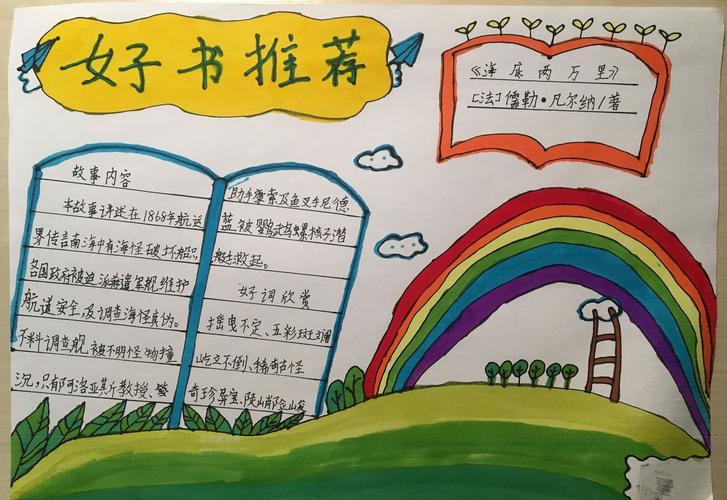 好书推荐
《海底两万里》
[法]儒勒·凡尔纳/著
故事内容
本故事讲述在1868年航运
界传言南海中有海怪破坏船只
各国政府被迫派遣军舰维护
航道安全,及调查海怪真伪。
不料调查舰被不明怪物撞
沉,只有阿洛亚其斤教授、
助手康索及鱼叉手尼德
蓝被鹦鹉螺核子潜
艇救起。
好词欣赏
摇曳不定、五彩斑斓
屹立不倒、稀奇古怪
奇珍异宝、